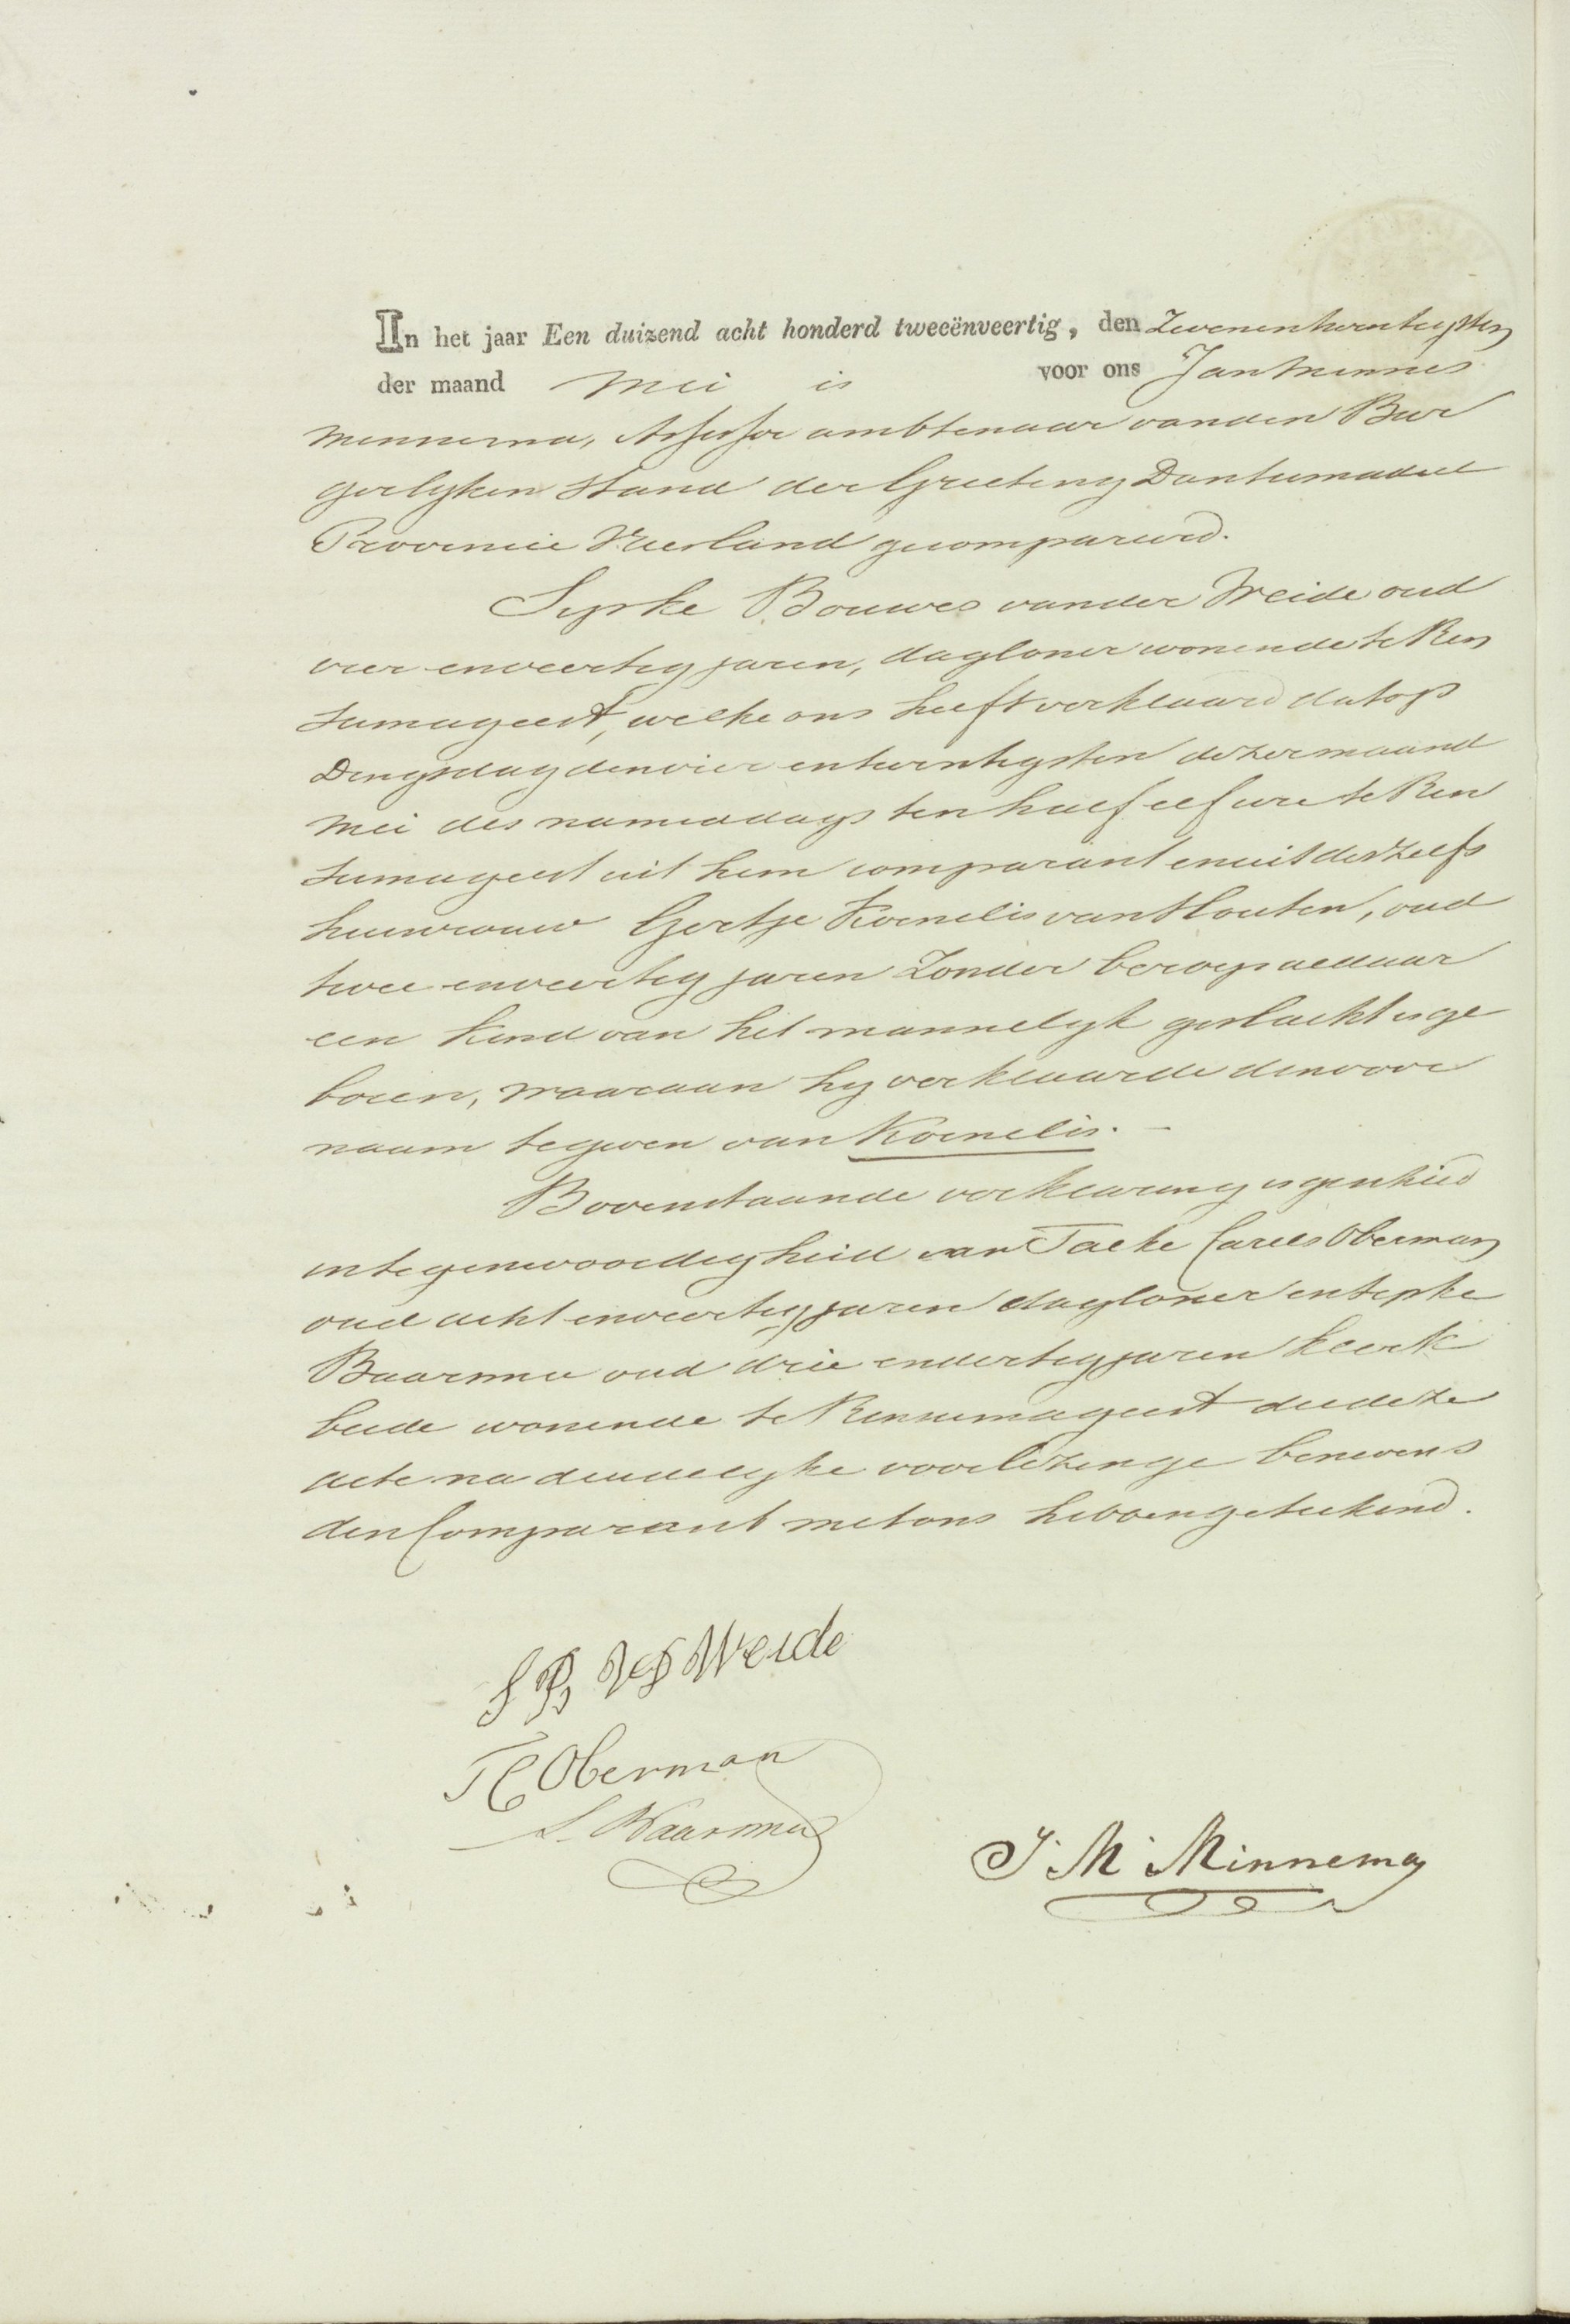 In het jaar Een duizend acht honderd tweeënveertig, den Zevenentwentigsten
der maand Mei is voor ons Jan Minnes
Minnema, Assessor ambtenaar van den Bur
gerlyken Stand der Grieteny Dantumadeel
Provincie Vriesland gecompareerd.
Sipke Bouwes van der Weide oud
vier en veertig jaren, dagloner wonende te Rin
sumageest, welke ons heeft verklaard dat op
Dingsdag den vier en twentigsten dezer maand
Mei des namiddags ten half elf ure te Rin
sumageest uit hem comparant en uit deszelfs
huisvrouw Gertje Kornelis van Houten, oud
twee en veertig jaren Zonder beroep aldaar
een kind van het mannelyk geslacht is ge
boren, waaraan hy verklaarde den voor
naam te geven van Kornelis. -
Bovenstaande verklaring is geschied
in tegenwoordigheid van Taeke Carels Oberman
oud acht en veertig jaren dagloner en Sipke
Baarsma oud drie en dertig jaren klerk
beide wonende te Rinsumageest die deze
acte na duidelyke voorlezinge benevens
den Comparant met ons hebben geteekend.
S B VD Weide
T C Oberman
S. Baarsma
J. M. Minnema